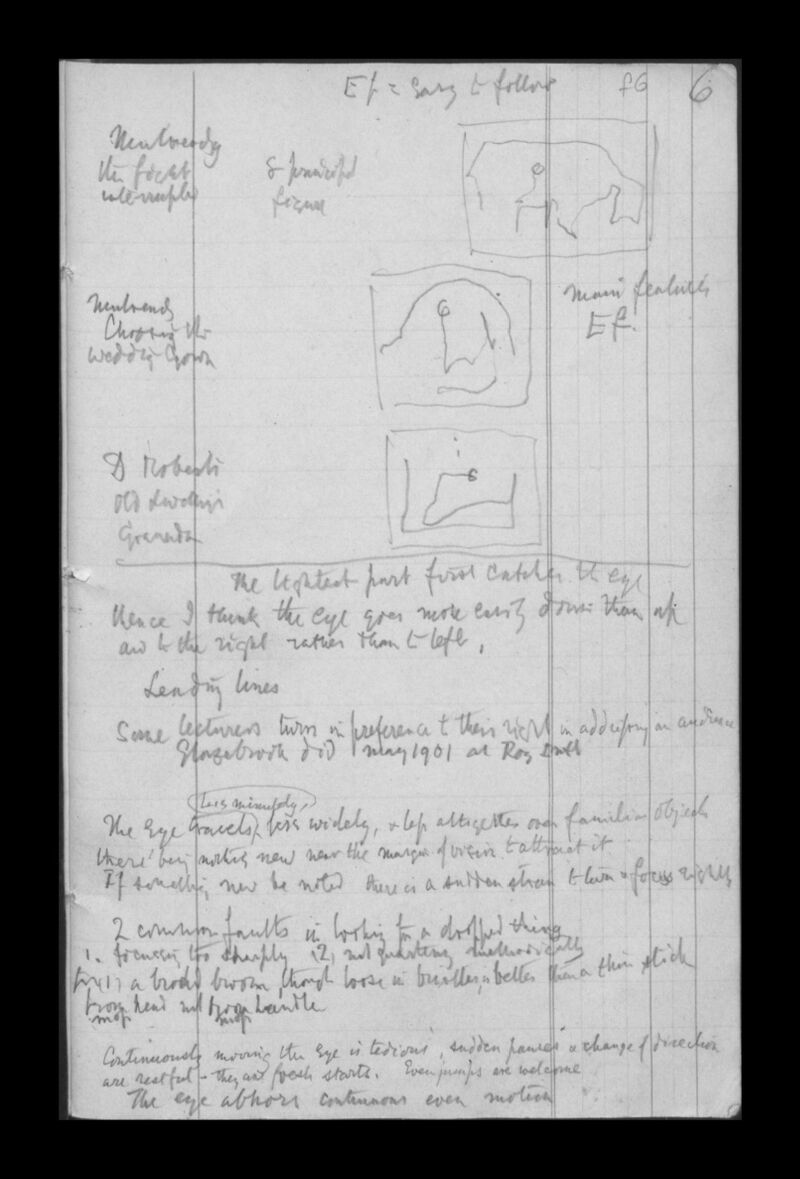 Ef = Easy to follow f6 6
Mulready
the fight
interrupted
& principal
figure
Mulready
Choosing the
wedding Gown
main features
Ef.
D Roberts
Old
Granada
The lightest part first catches the eye
Hence I think the eye goes more easily down than up
and to the right rather than to left.
Leading lines
Some lecturers turn in preference to their right in addressing an audience
Glazebrook did May 1901 at Roy Instn
less minutely,
The Eye travels less widely, & less altogether over familiar objects
there being nothing new near the margin of vision to attract it
If something new be noted there is a sudden strain to turn & focus rightly
2 common faults in looking for a dropped thing
1. focussing too sharply (2) not quartering methodically
for (1) a broad broom, though loose in bristles, is better than a thin stick
broom head not broom handle
mop mop
Continuously moving the Eye is tedious, sudden pauses & change of direction
are restful - they are fresh starts. Even jumps are welcome
The eye abhors continuous even motion